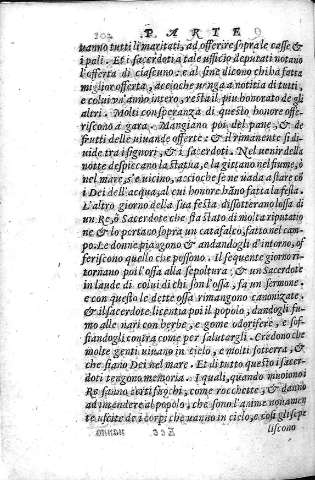 PARTE
uanno tutti li maritati, ad offerire sopra le casse &
i pali. Et i sacerdoti a tale ufficio deputati notano
l'offerta di ciascuno: e al fine dicono chi ha fatta
miglior offerta, accioche uenga a notitia di tutti,
e colui va'anno intero, resta il piu honorato de gli
altri. Molti con speranza di questo honore offe-
riscono a gara. Mangiano poi del pane, & de
frutti delle uiuande offerte: & il rimanente si di-
uide tra i signori, & i sacerdoti. Nel uenir della
notte despiccano la statua, e la gittano nel fiume, ò
nel mare, s'è uicino, accioche se ne uada a stare cō
i Dei dell'acqua, al cui honore hāno fatta la festa.
L'altro giorno della sua festa dissotterano l'ossa di
un Re, ò Sacerdote che sia stato di molta riputatio
ne & lo portano sopra un catafalco, fatto nel cam-
po. Le donne piangono & andandogli d'intorno, of
feriscono quello che possono. Il sequente giorno ri-
tornano poi l'ossa alla sepoltura: & un Sacerdote
in laude di colui di chi son l'ossa, fa un sermone.
e con questo le dette ossa rimangono canonizate.
& il sacerdote licentia poi il popolo, dandogli fu-
mo alle nari con herbe, e gome odorifere, e sof-
fiandogli contra come per salutargli. Credono che
molte genti uiuano in cielo, e molti sotterra, &
che siano Dei nel mare. Et di tutto questo i sacer-
doti tengono memoria. I quali, quando muoiono i
Re fanno certi fuochi, come rocchette, & danno
ad intendere al popolo, che sono l'anime nouamen
te uscite de i corpi che uanno in cielo, e cosi gli sepe
liscono